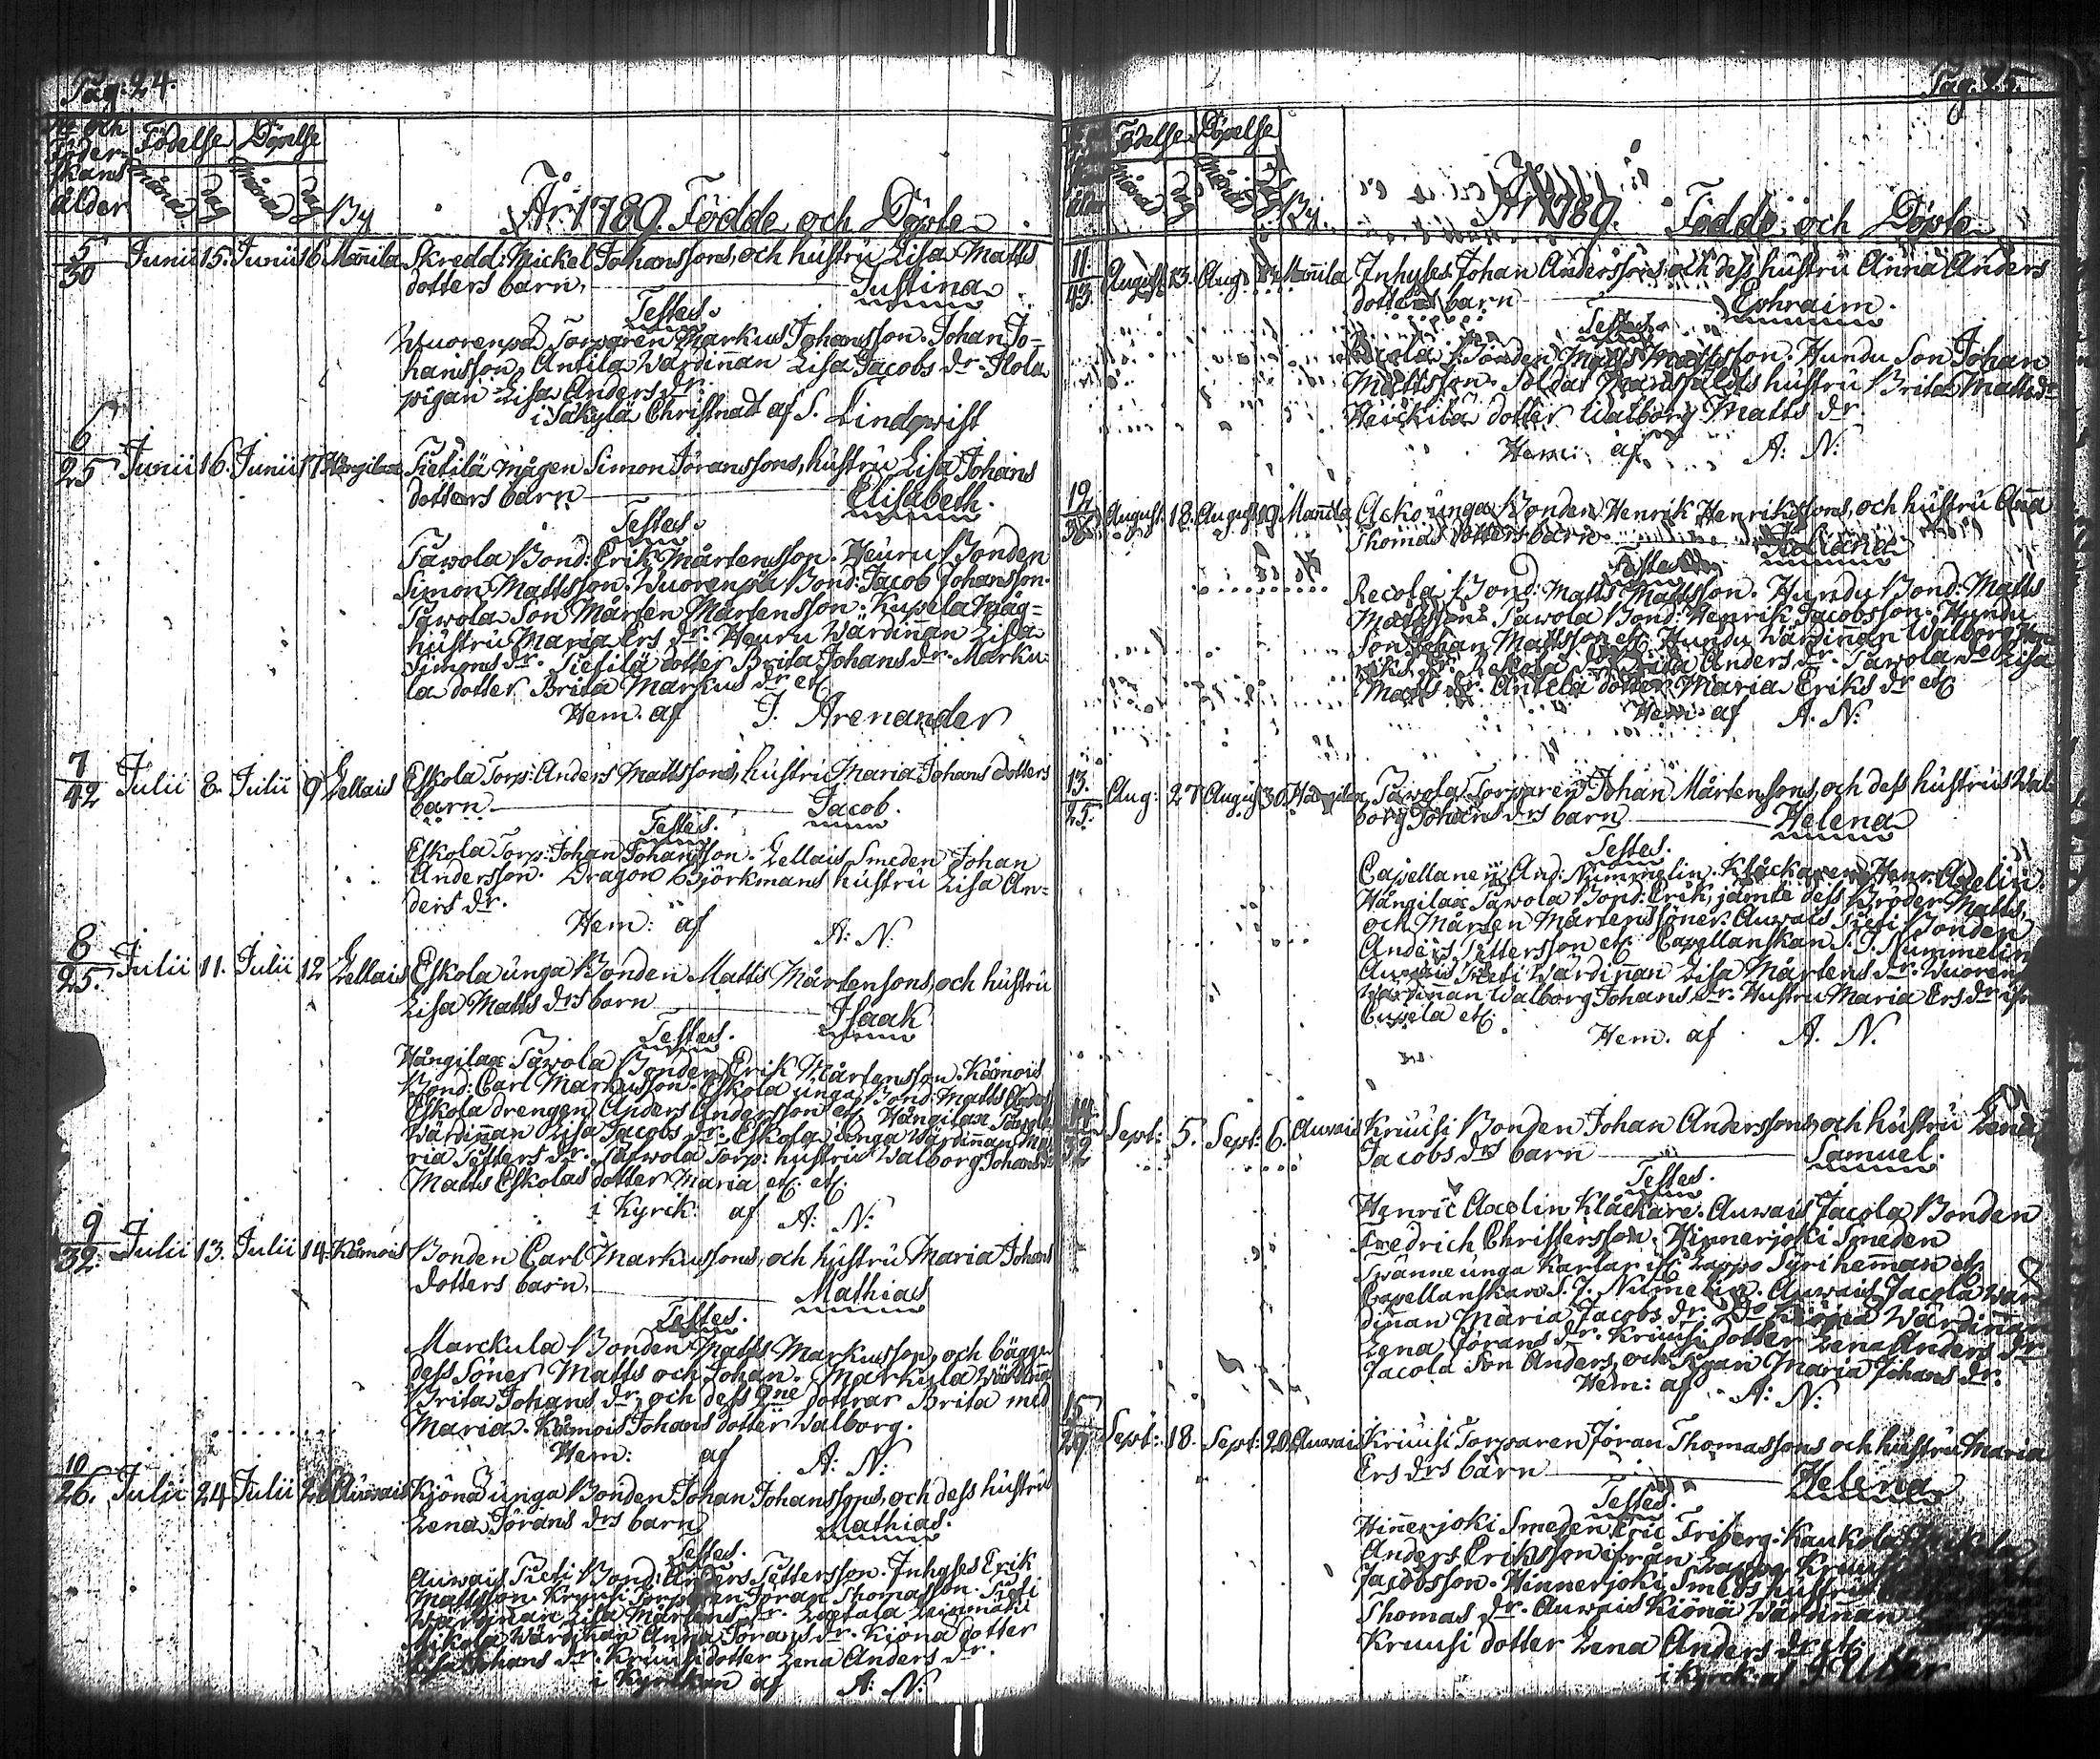 Pag. 24.
No och Föder-skans ålder
Födelse Månad dag
Döpelse Månad dag
By
År 1789. Födde och Döpte
5/30 Junii 15. Junii 16 Mannila Skredd: Mickel Johanssons, och hustru Lisa Matts
dotters barn, Justina
Testes.
Wuorenpä Torparen Markus Johansson. Johan Jo=
hansson, Antila Wärdinnan Lisa Jacobs dr. Ilola
pigan Lisa Anders dr.
i Säkylä Christnadt af S. Lindqwist
6/25 Junii 16. Junii 17 Hångilax Tietilä Mågen Simon Jöranssons, hustru Lisa Johans
dotters barn Elisabeth.
Testes.
Tåwola Bond: Erik Mårtensson. Heuru Bonden
Simon Mattsson. Wuorenpä Bond: Jacob Johansson.
Tåwola Son Mårten Mårtensson. Kupela Måg=
hustru Maria Ers dr. Heuru Wärdinnan Lisa
Simons dr. Tietilä dotter Brita Johans dr. Marku-
la dotter Brita Markus dr etc
Hem. af J. Arenander
7/42 Julii 8. Julii 9 Lellais Eskola Torp: Anders Mattssons, hustru Maria Johans dotters
barn. Jacob.
Testes.
Eskola Torp: Johan Johansson. Lellais Smeden Johan
Andersson. Dragon Björkmans hustru Lisa An=
ders dr.
Hem: af A: N:
8/25. Julii 11. Julii 12 Lellais Eskola unga Bonden Matts Mårtensons, och hustru
Lisa Matts drs barn Isaak
Testes.
Hångilax Tåwola Bonden Erik Mårtensson. Kåmois
Bond: Carl Markusson. Eskola unga Bond: Matts Anders
Eskola drengen Anders Andersson etc. Hångilax Tåwola
Wärdinnan Lisa Jacobs dr. Eskola unga Wärdinnan Ma
ria Petters dr. Tåwola Torp: hustru Walborg Johans
Matts Eskolas dotter Maria etc. etc.
i Kyrk: af A: N:
9/32 Julii 13. Julii 14. Kåmois Bonden Carl Markussons, och hustru Maria Johans
dotters barn, Mathias
Testes.
Marckula Bonden Matts Markusson, och bägge
dess Söner Matts och Johan. Markula Wärdinna
Brita Johans dr, och dess 2ne dottrar Brita med
Maria. Kåmois Johans dotter Walborg.
Hem: af A: N:
10/26. Julii 24 Julii 26 Auwais Kjönä unga Bonden Johan Johanssons, och dess hustru
Lena Jörans drs barn Mathias.
Testes.
Auwais Tieti Bond: Anders Pettersson. Inhyses Erik
Mattsson. Kruusi Torparen Jöran Thomasson. Tieti
Wärdinnan Lisa Mårtens dr.
Mikola Wärdinnan Anna Jörans dr. Kiönä dotter
Lisa Johans dr. Kruusi dotter Lena Anders dr.
i Kyrkan af A: N:
Pag. 25
Födelse Månad dag
Döpelse Månad dag
By.
År 1789. Födde och Döpte
11./43. August 13. Aug: Mannila Inhyses Johan Anderssons och dess hustru Anna Anders
dotters barn Ephraim.
Testes.
Recola Bonden Matts Mattsson. Hundu Son Johan
Mattsson. Soldat Mansfaldts hustru Brita Matts dr
Heickilä dotter Walborg Matts dr.
Hem: af A: N:
12/36 August. 18. August 19. Mannila Acko unga Bonden Henrik Henrikssons, och hustru Anna
Thomas dotters barn Juliana
Testes
Recola Bond: Matts Mattsson. Hundu Bond: Matts
Mattsson. Tawola Bond: Henrik Jacobsson. Hundu
Son Johan Mattsson etc. Hundu Wärdinnan Walborg Hen
riks dr. Anders dr. Tawola do Lisa
Matts dr. Antela dotter Maria Eriks dr etc
Hem. af A. N:
13./25. Aug: 27 August 30. Hångilax Tawola Torparen Johan Mårtenssons, och dess hustrus Wal
borg Johans drs barn Helena
Testes.
Capellanen And: Nummelin. Klåckaren Henr: Axelin.
Hångilax Tawola Bond: Erik, jämte dess Bröder Matts,
och Mårten Mårtenssöner. Auwais Tieti Bonden
Anders Pettersson etc. Capellanskan S. J. Nummelin
Auwais Tieti Wärdinnan Lisa Mårtens dr. Wuoren
Wärdinnan Walborg Johans dr. Hustru Maria Ers dr ifr
Cupela etc.
Hem. af A. N.
14/32 Sept: 5. Sept: 6. Auwais Kruusi Bonden Johan Anderssons, och hustru Lena
Jacobs drs barn Samuel.
Testes.
Henric Axelin Klåckare. Auwais Jacola Bonden
Fredrich Christersson. Hinnerjoki Smeden
Swänne unga Karlar ifr: Lappo Syriheman etc.
Capellanskan S. J. Numelin. Auwais Jacola Wär
dinan Maria Jacobs dr. Do Kiönä Wärdinnan
Lena Jörans dr. Kruusi dotter Lena Anders dr
Jacola Son Anders, och Pigan Maria Johans dr.
Hem: af A: N:
15/29 Sept: 18. Sept: 20. Auwais Kruusi Torparen Jöran Thomassons och hustru Maria
Ers drs barn Helena
Testes.
Hinnerjoki Smeden Eric Friberg. Kaukola
Anders Eriksson ifrån Lappo.
Jacobsson. Hinnerjoki Smeds hustru
Thomas dr. Auwais Kiönä Wärdinnan
Kruusi dotter Lena Anders dr etc.
i Kyrk: af